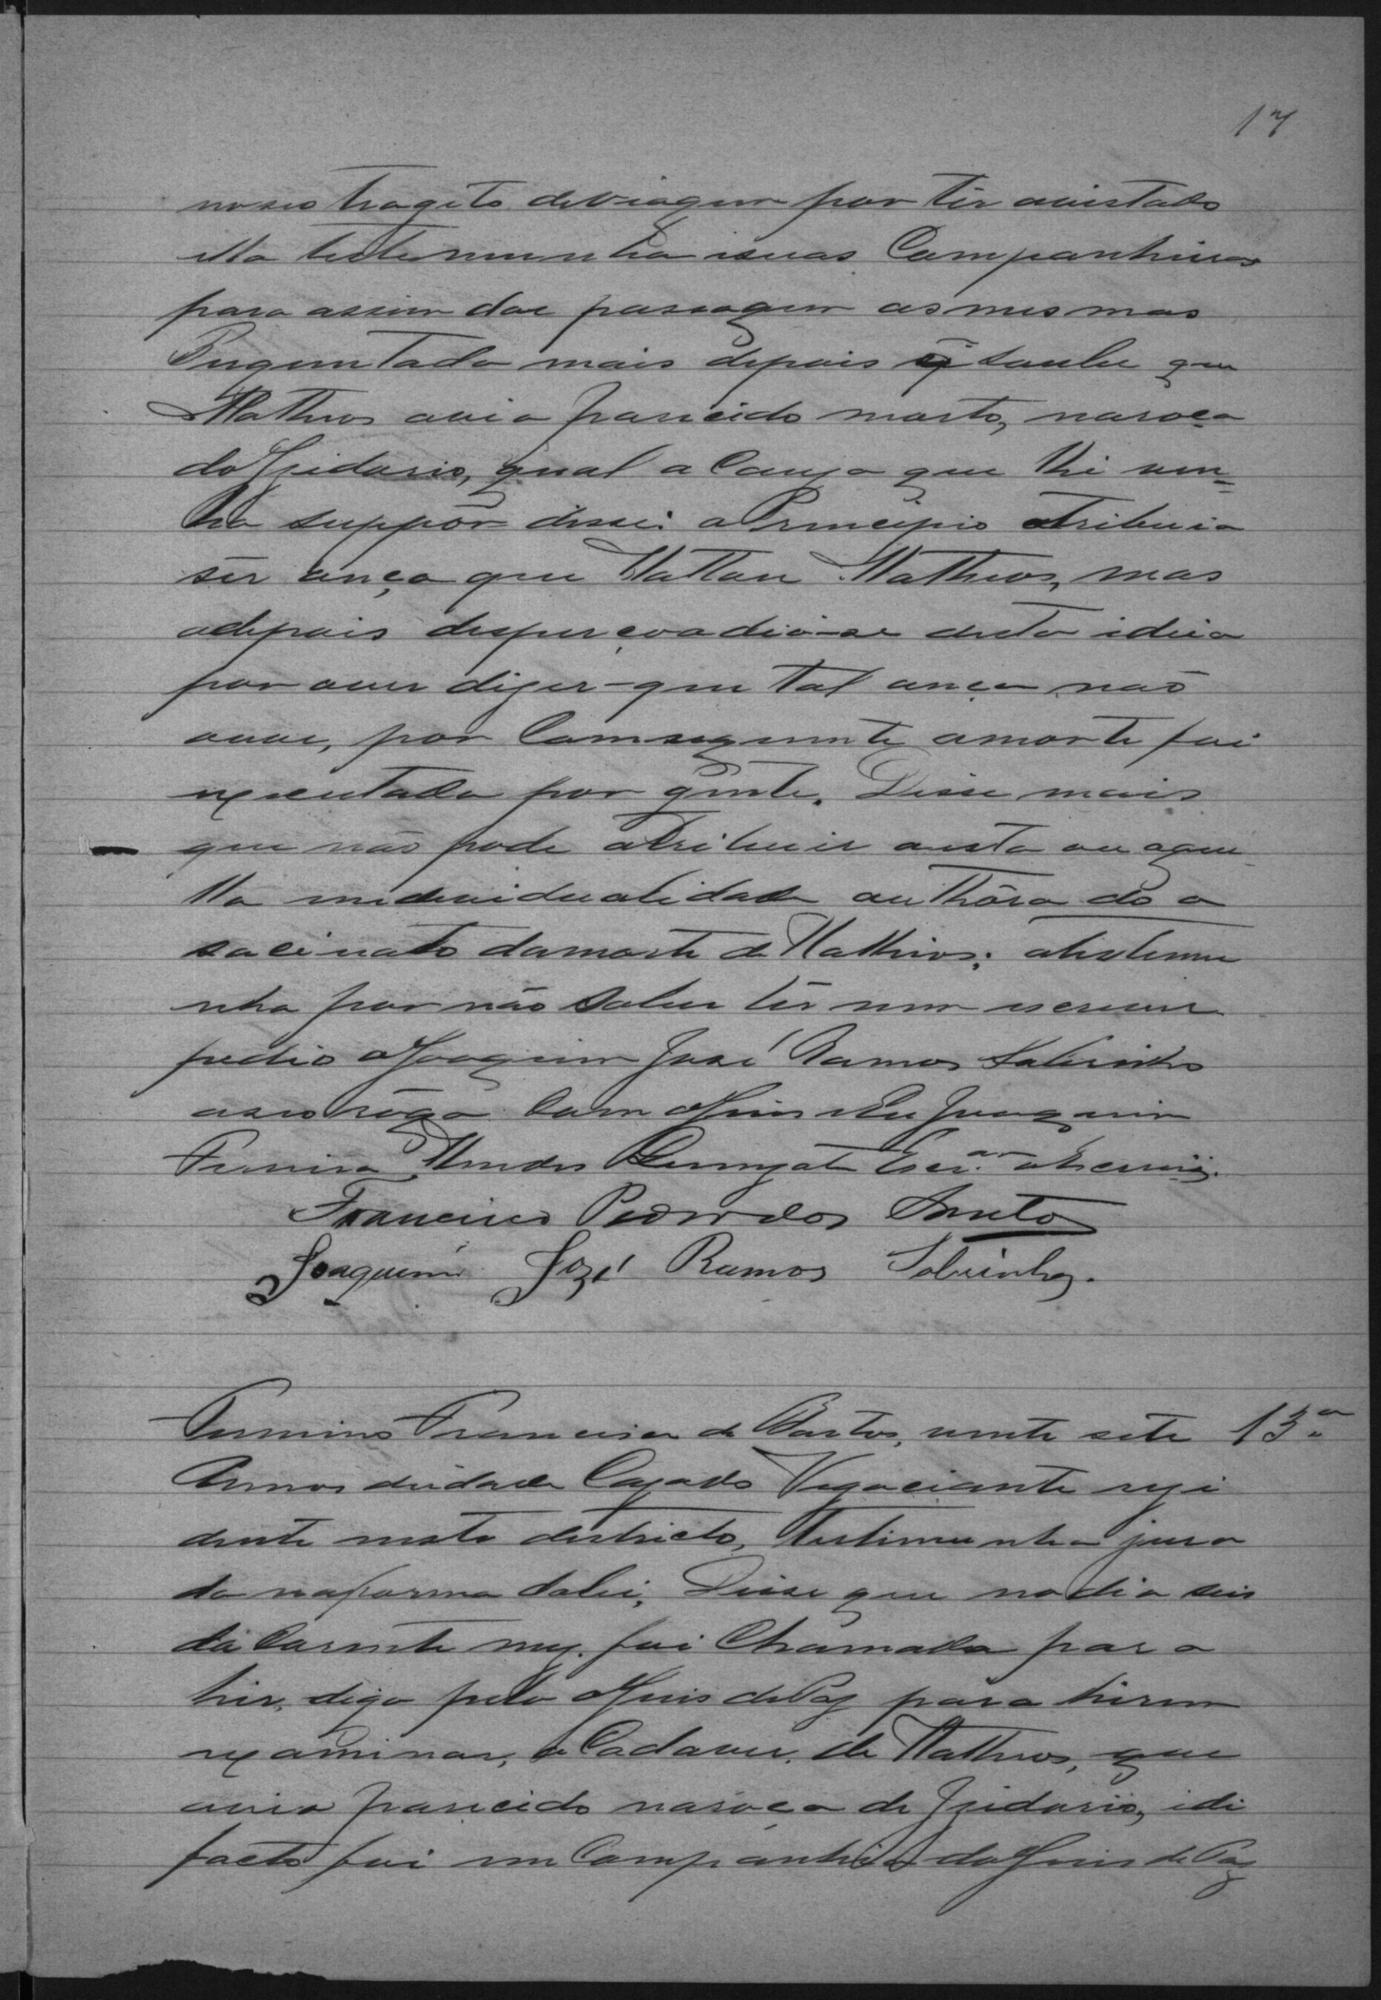 17
no seo trageto de viagem por ter avistado
ella testemunha i suas Companheiras
para assim dar passagem as mesmas
Perguntado mais depois q̃ soube que
Matheos avia parecido morto, na roça
do Izidorio, qual a Cauza que lhi vem=
ha suppôr disse: a Principio atribuia
sêr onça que Mattou Matheos, mas
adepois despersoadio-se desta ideia
por aver dizer-que tal onça não
ouve, por Comseguente a morte foi
ezecutada por gente. Disse mais
que não pode atribuir a esta ou aque
lla individualidade authôra do a
sacinato da morte de Matheos; a testemu
nha por não saber lêr nem escrever
pedio a Joaquim José Ramos Sobrinho
a seo rôgo Com o Juis e Eu Joaquim
Ferreira Mendes Escr.am o escrevi.
Francisco Pedro dos Santos
Joaquim Jozé Ramos Sobrinho.
Firmino Francisco de Bastos, vinte sete 13.a
Annos de idade Cazado Negociante rezi
dente neste destricto, testimunha jura
da na forma da lei, Disse que no dia seis
do Corrente mez foi Chamado para
hir, digo pelo Juis de Paz para hirem
ezaminar, o Cadaver de Matheos, que
avia parecido na roça de Izidorio, i di
facto foi em Companhia do Juis de Paz